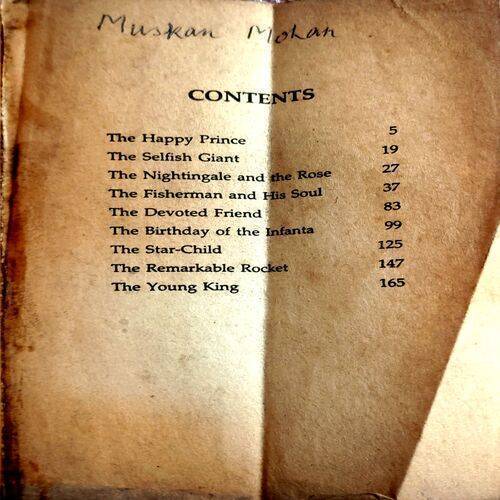 Muskan Mohan
CONTENTS
The Happy Prince 5
The Selfish Giant 19
The Nightingale and the Rose 27
The Fisherman and His Soul 37
The Devoted Friend 83
The Birthday of the Infanta 99
The Star-Child 125
The Remarkable Rocket 147
The Young King 165